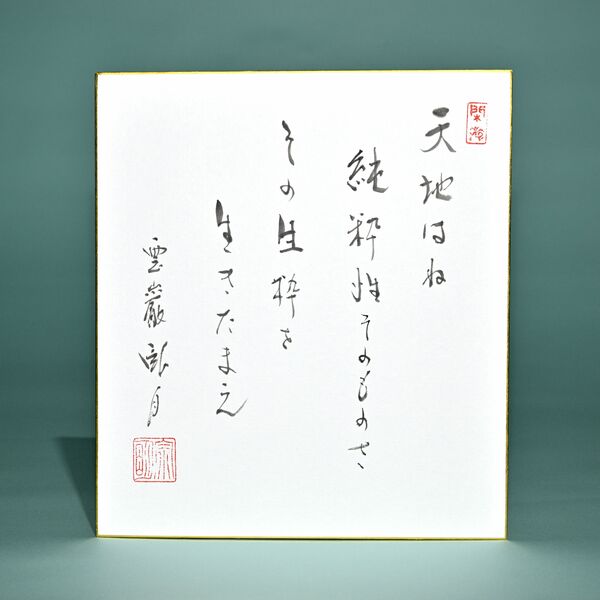 天地はね
純粋性そのものさ
その生粋を
生きたまえ
雲巌臥月